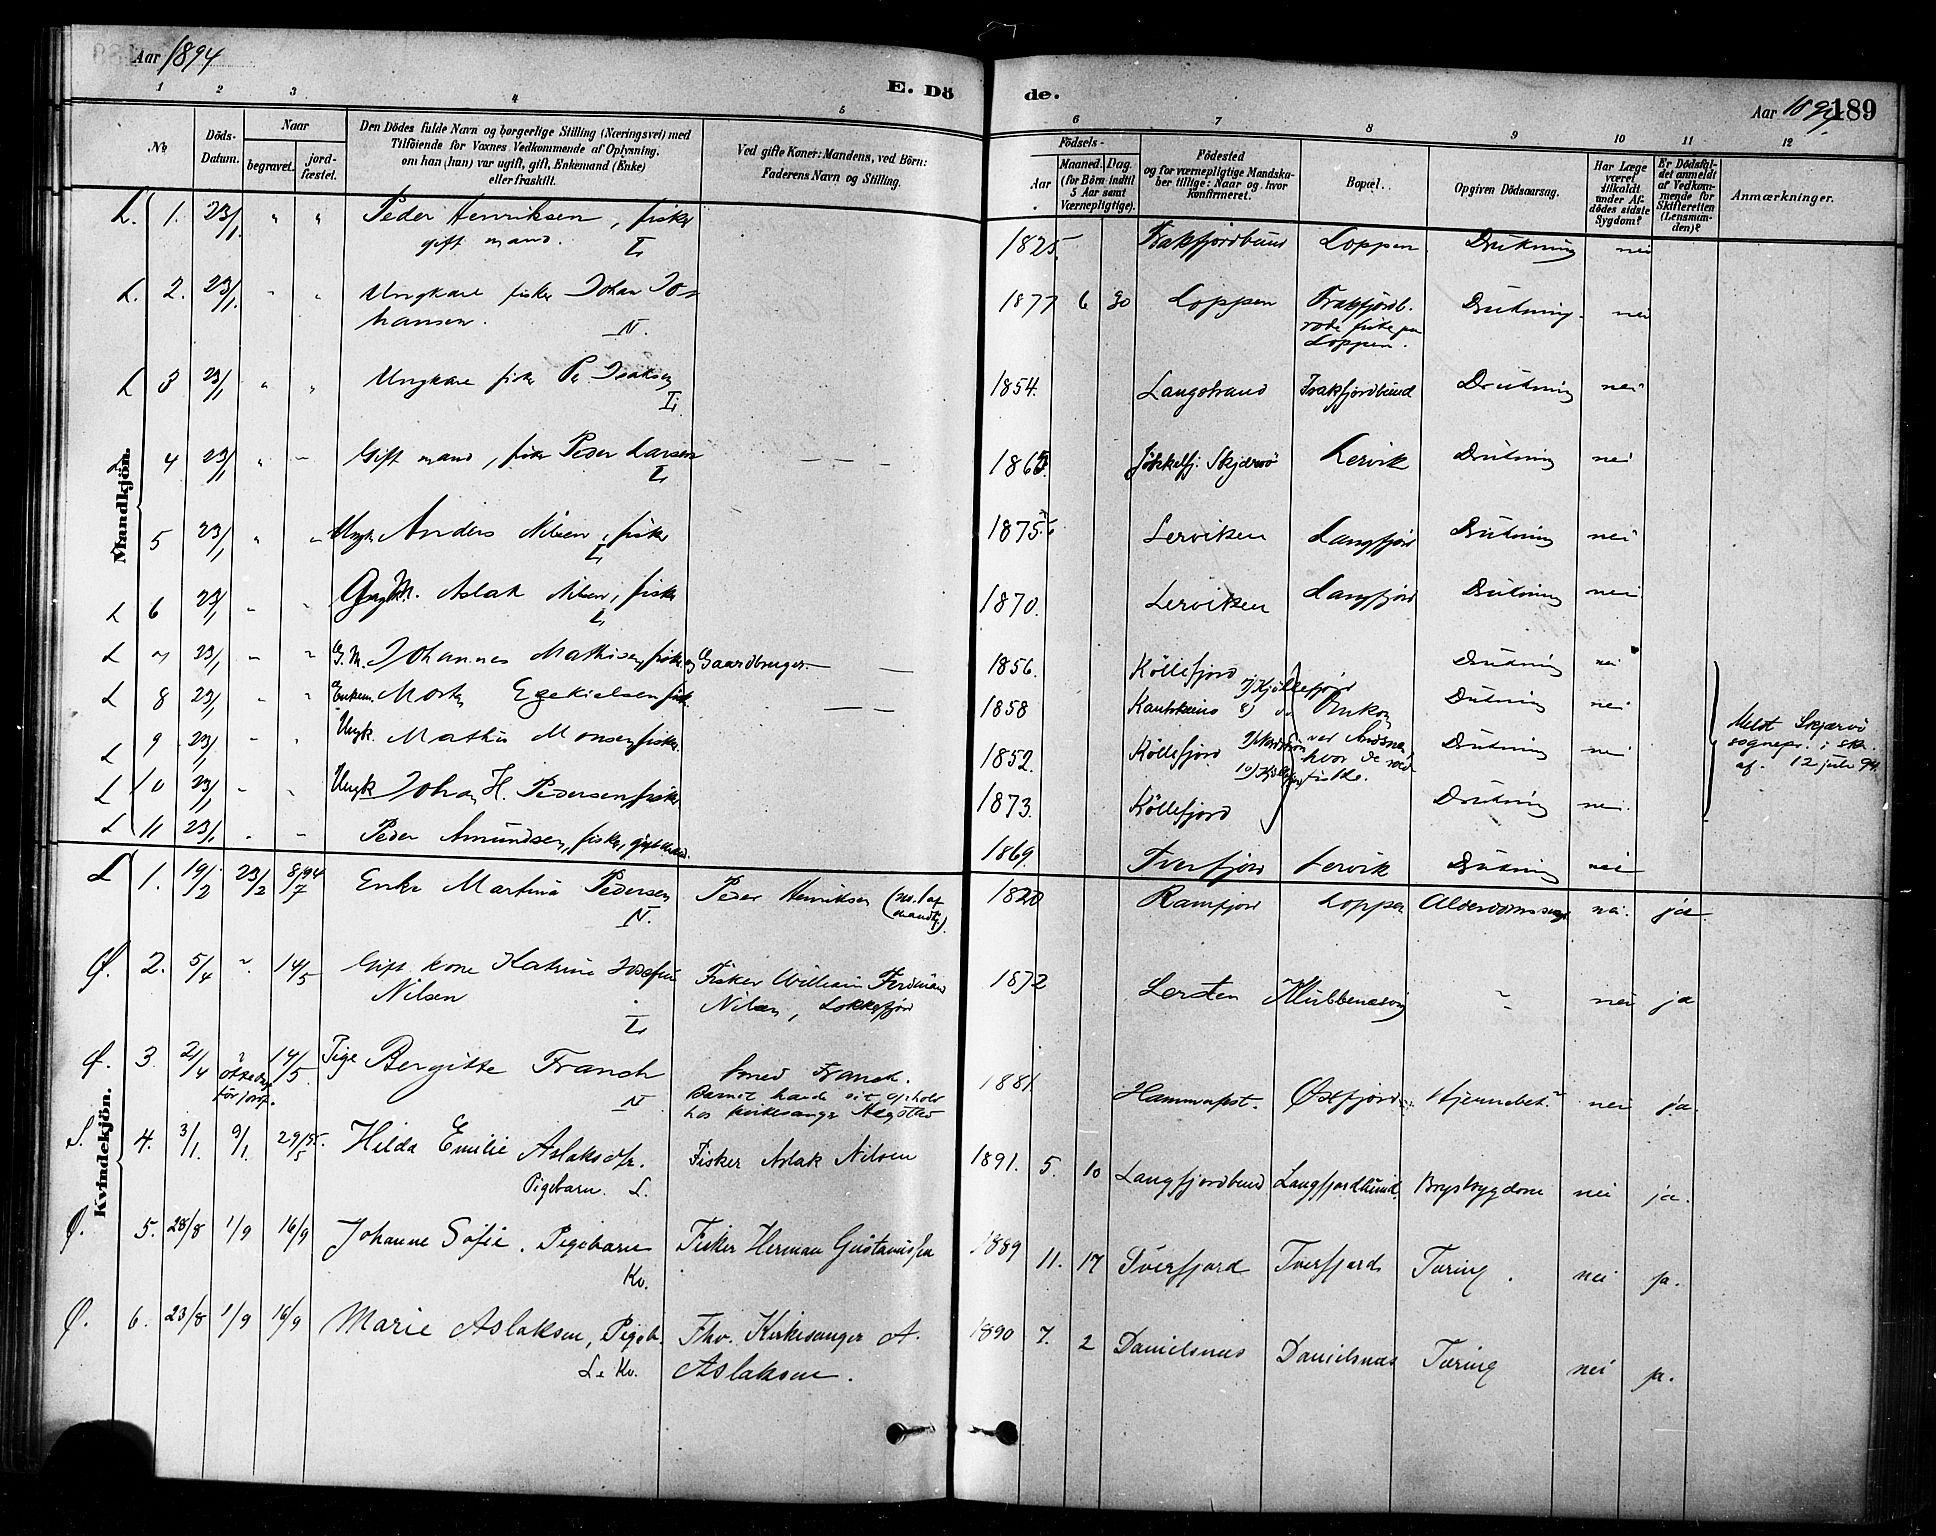 Aar 1894
E. Dö
de.
Aar 1894
189
1 2 3 4 5 6 7 8 9 10 11 12
No
Döds-Datum.
Naar
begravet.
jord-fæstet.
Den Dödes fulde Navn og borgerlige Stilling (Næringsvei) med
Tilföiende for Voxnes Vedkommende af Oplysning,
om han (hun) var ugift, gift, Enkemand (Enke)
eller fraskilt.
Ved gifte Koner: Mandens, ved Börn:
Faderens Navn og Stilling.
Födsels-
Aar
Maaned. Dag.
(for Börn indtil
5 Aar samt
Værnepligtige).
Födested
og for værnepligtige Mandska-
ber tillige: Naar og hvor
konfirmeret.
Bopæl.
Opgiven Dödsaarsag.
Har Læge
været
tilkaldt
under Af-
dödes sidste
Sygdom?
Er Dödsfal-
det anmeldt
af Vedkom-
mende for
Skifteretten
(Lensman-
den)?
Anmærkninger.
Mandkjön.
L. 1. 23/1 " " Peder Henriksen, fisker 1825. Frakfjordbund Loppen Drukning nei
gift mand. L
L. 2. 23/1 " " Ungkarl fisker Johan Jo- 1877 6 30 Loppen Frakfjordb. Drukning nei
hansen. N. Loppen.
L 3 23/1 " " Ungkarl fisker Per Isaksen 1854. Langstrand Frakfjordbund Drukning nei
L
4 23/1 " " Gift mand, fisker Peder Larsen — — — 1865 Jökkelfj. Skjervö Lervik Drukning nei
L
5 23/1 " " Ungk. Anders Nilsen, fisker 1875. Lerviken Langfjord Drukning nei
L
L 6 23/1 " " Aslak Nilsen, fisker 1870. Lerviken Langfjord Drukning nei
L
L 7 23/1 " " G. M. Johannes Mathisen fisker og Gaardbruger — — 1856. Köllefjord Drukning nei
L 8 23/1 " " Enkem. Morten Ezekielsen fisk. — — 1858 Kautokeino Drukning nei
L 9 23/1 " " Ungk. Mathis Monsen fisker 1852. Köllefjord Drukning nei
L 10 23/1 " " Ungk Johan H. Pedersen fisker 1873. Köllefjord Drukning nei
7) Kjöllefjord
8) do
ved Andsnes
hvor de rode
fiske.
Meldt Skjærvö
sognepr. i skr.
af. 12 juli 94.
L 11 23/1 " " Peder Amundsen, fisker, gift mand. 1869. Tverfjord Lervik Drukning nei
Kvindekjön.
L 1. 19/2 23/2 8/7 94 Enke Martina Pedersen Peder Henriksen (no. 1 af 1820 Ramfjord Loppen Alderdomssvagh. nei. ja.
N. mandk.)
Ø. 2. 5/4 " 14/5 Gift kone Katrine Josefine Fisker William Ferdinand 1872 Lersten Klubbenesvig " nei ja
Nilsen L Nilsen, Lokkefjord
Ø. 3. 2/4 " 14/5. Pige Bergitte Franch Smed Franch. 1881. Hammerfest. Øxfjord Hjernebet. nei ja
N Barnet havde sit ophold
hos kirkesanger
S. 4. 3/1. 9/1. 29/5 95. Hilda Emilie Aslaksdtr. Fisker Aslak Nilsen 1891. 5. 10 Langfjordbund Langfjordbund Brystsygdom nei ja.
Pigebarn. L.
Ø. 5. 28/8 1/9 16/9 Johanne Sofie. Pigebarn Fisker Herman Gustavussen 1889 11. 17 Tverfjord Tverfjord Tæring. nei ja.
Kv.
Ø. 6. 23/8 1/9 16/9 Marie Aslaksen, Pigeb. Fhv. Kirkesanger A. 1890 7. 2 Danielsnes Danielsnes Tæring nei ja.
L. Kv. Aslaksen.